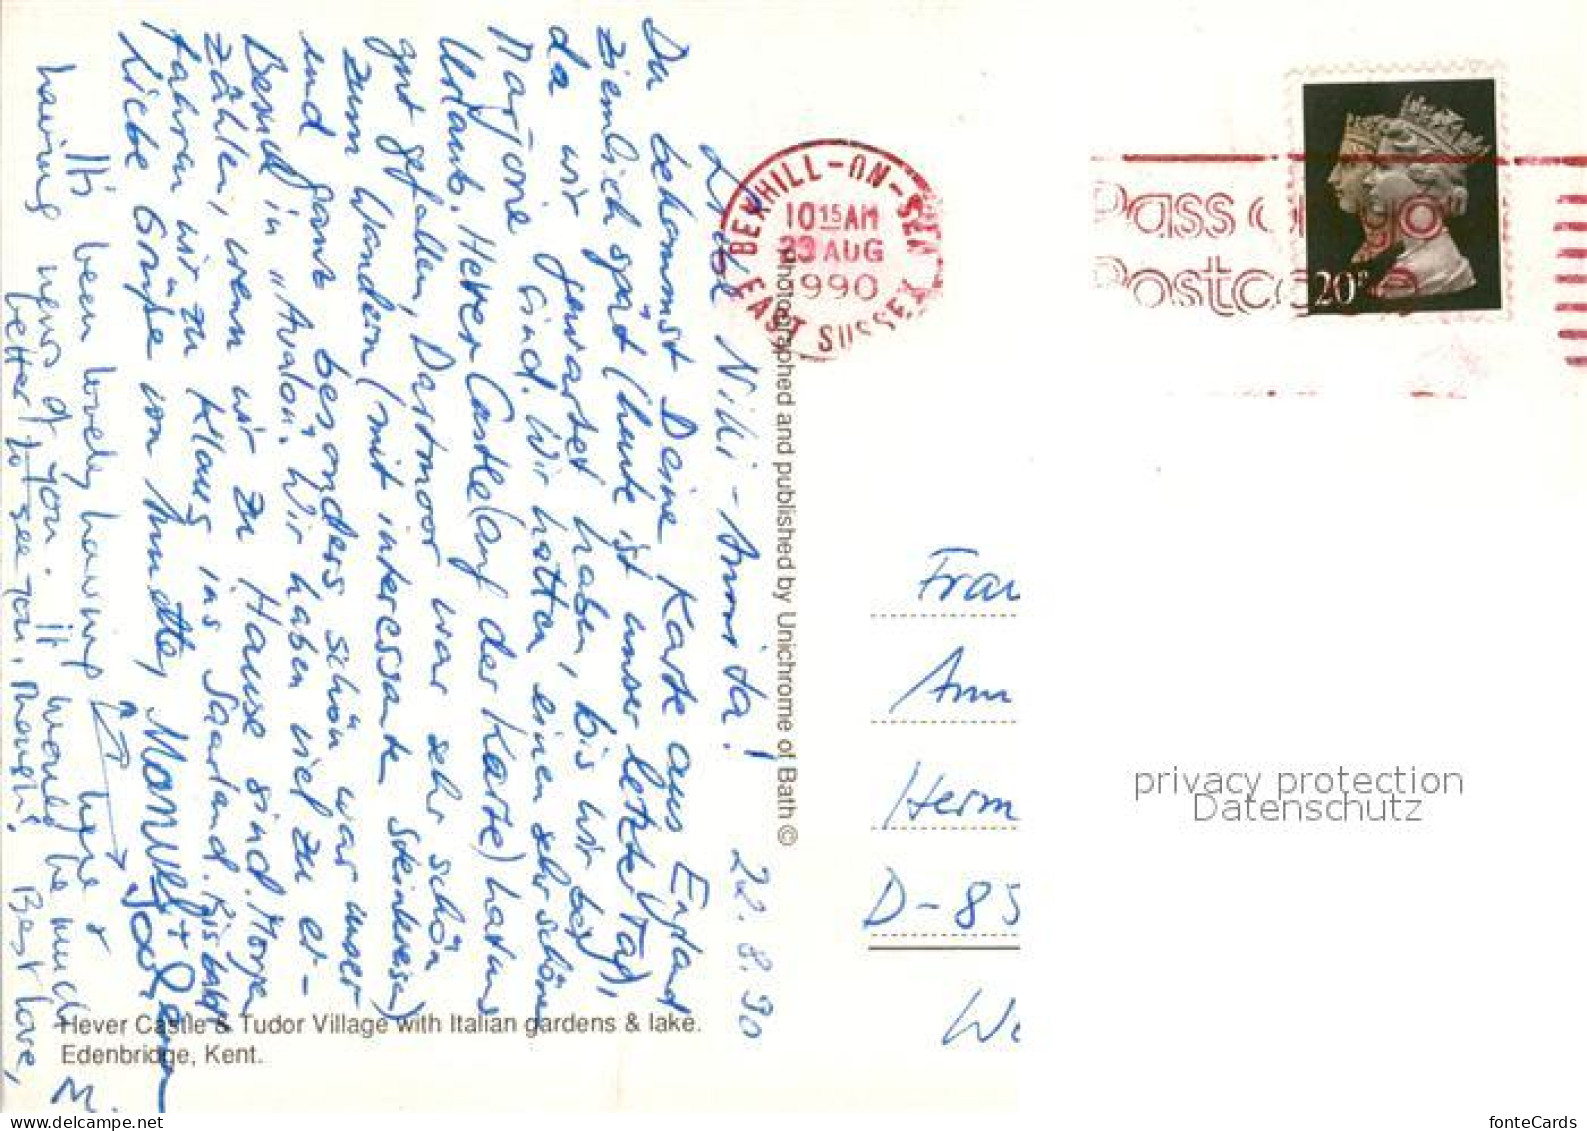 22.8.90
Liebe Niki-Annita!
Du bekommst Deine Karte aus England
ziemlich spät (heute ist unser letzter Tag),
da wir gewartet haben, bis wir bei
Marjorie sind. Wir hatten einen sehr schönen
Urlaub. Hever Castle (auf der Karte) hat uns
gut gefallen, Dartmoor war sehr schön
zum Wandern (mit interessanten Steinkreisen)
und ganz besonders schön war unser
Besuch in "Avalon". Wir haben viel zu er-
zählen, wenn wir zu Hause sind. Morgen
fahren wir zu Klaus ins Saarland. Bis bald
Liebe Grüße von Mutter, Manuel +
It's been lovely having here &
having news of you. It would be much
better to see you, though! Best love,
M
BEXHILL-ON-SEA
1015AM
23 AUG
1990
EAST SUSSEX
Pass
Postco
20P
Photographed and published by Unichrome of Bath ©
Frau
Ann
Herm
D-85
We
privacy protection
Datenschutz
Hever Castle & Tudor Village with Italian gardens & lake.
Edenbridge, Kent.
fonteCards